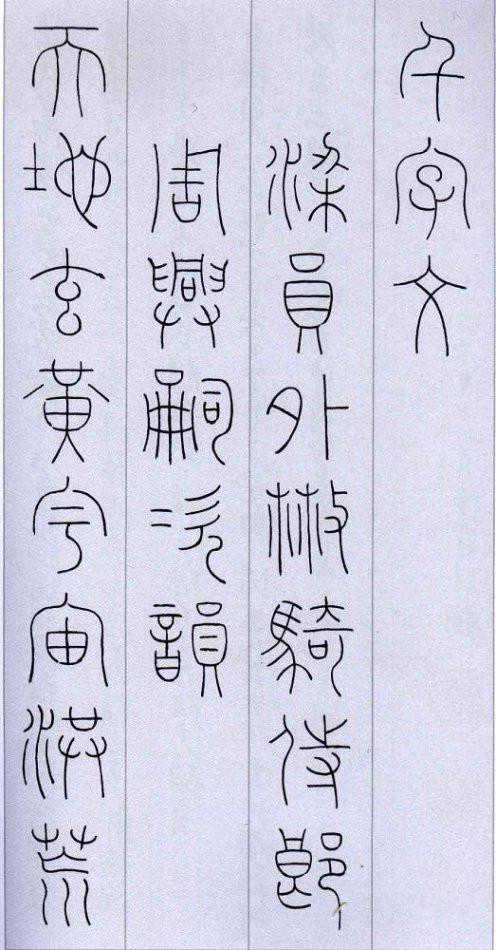 千字文
梁員外散騎侍郎
周興嗣次韻
天地玄黃宇宙洪荒